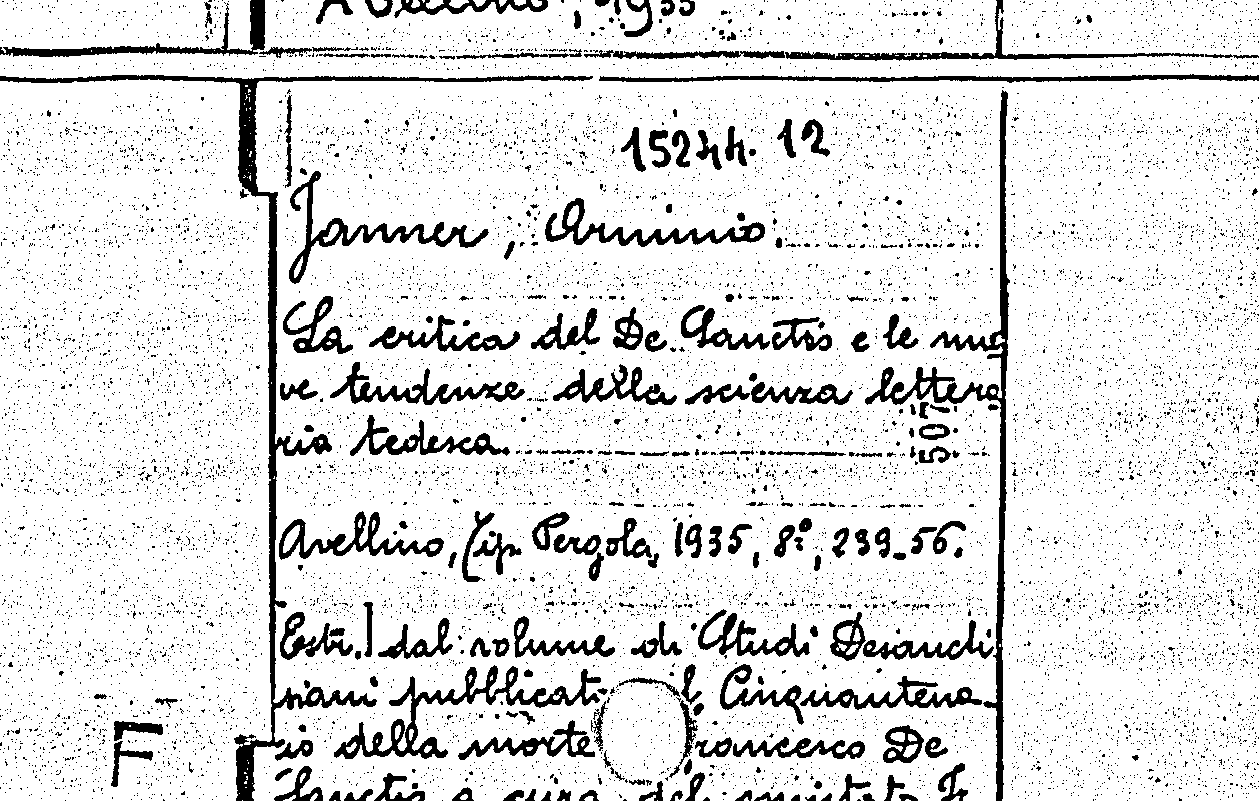 Avellino, 1935
15244. 12
Janner, Arminio.
La critica del De Sanctis e le nuo
ve tendenze della scienza lettera
ria tedesca.
507
Avellino, Tip. Pergola, 1935, 8º, 239-56.
Estr.] dal volume di Studi Desancti
siani pubblicati Cinquantena
rio della morte Francesco De
Sanctis a cura del comitato
F